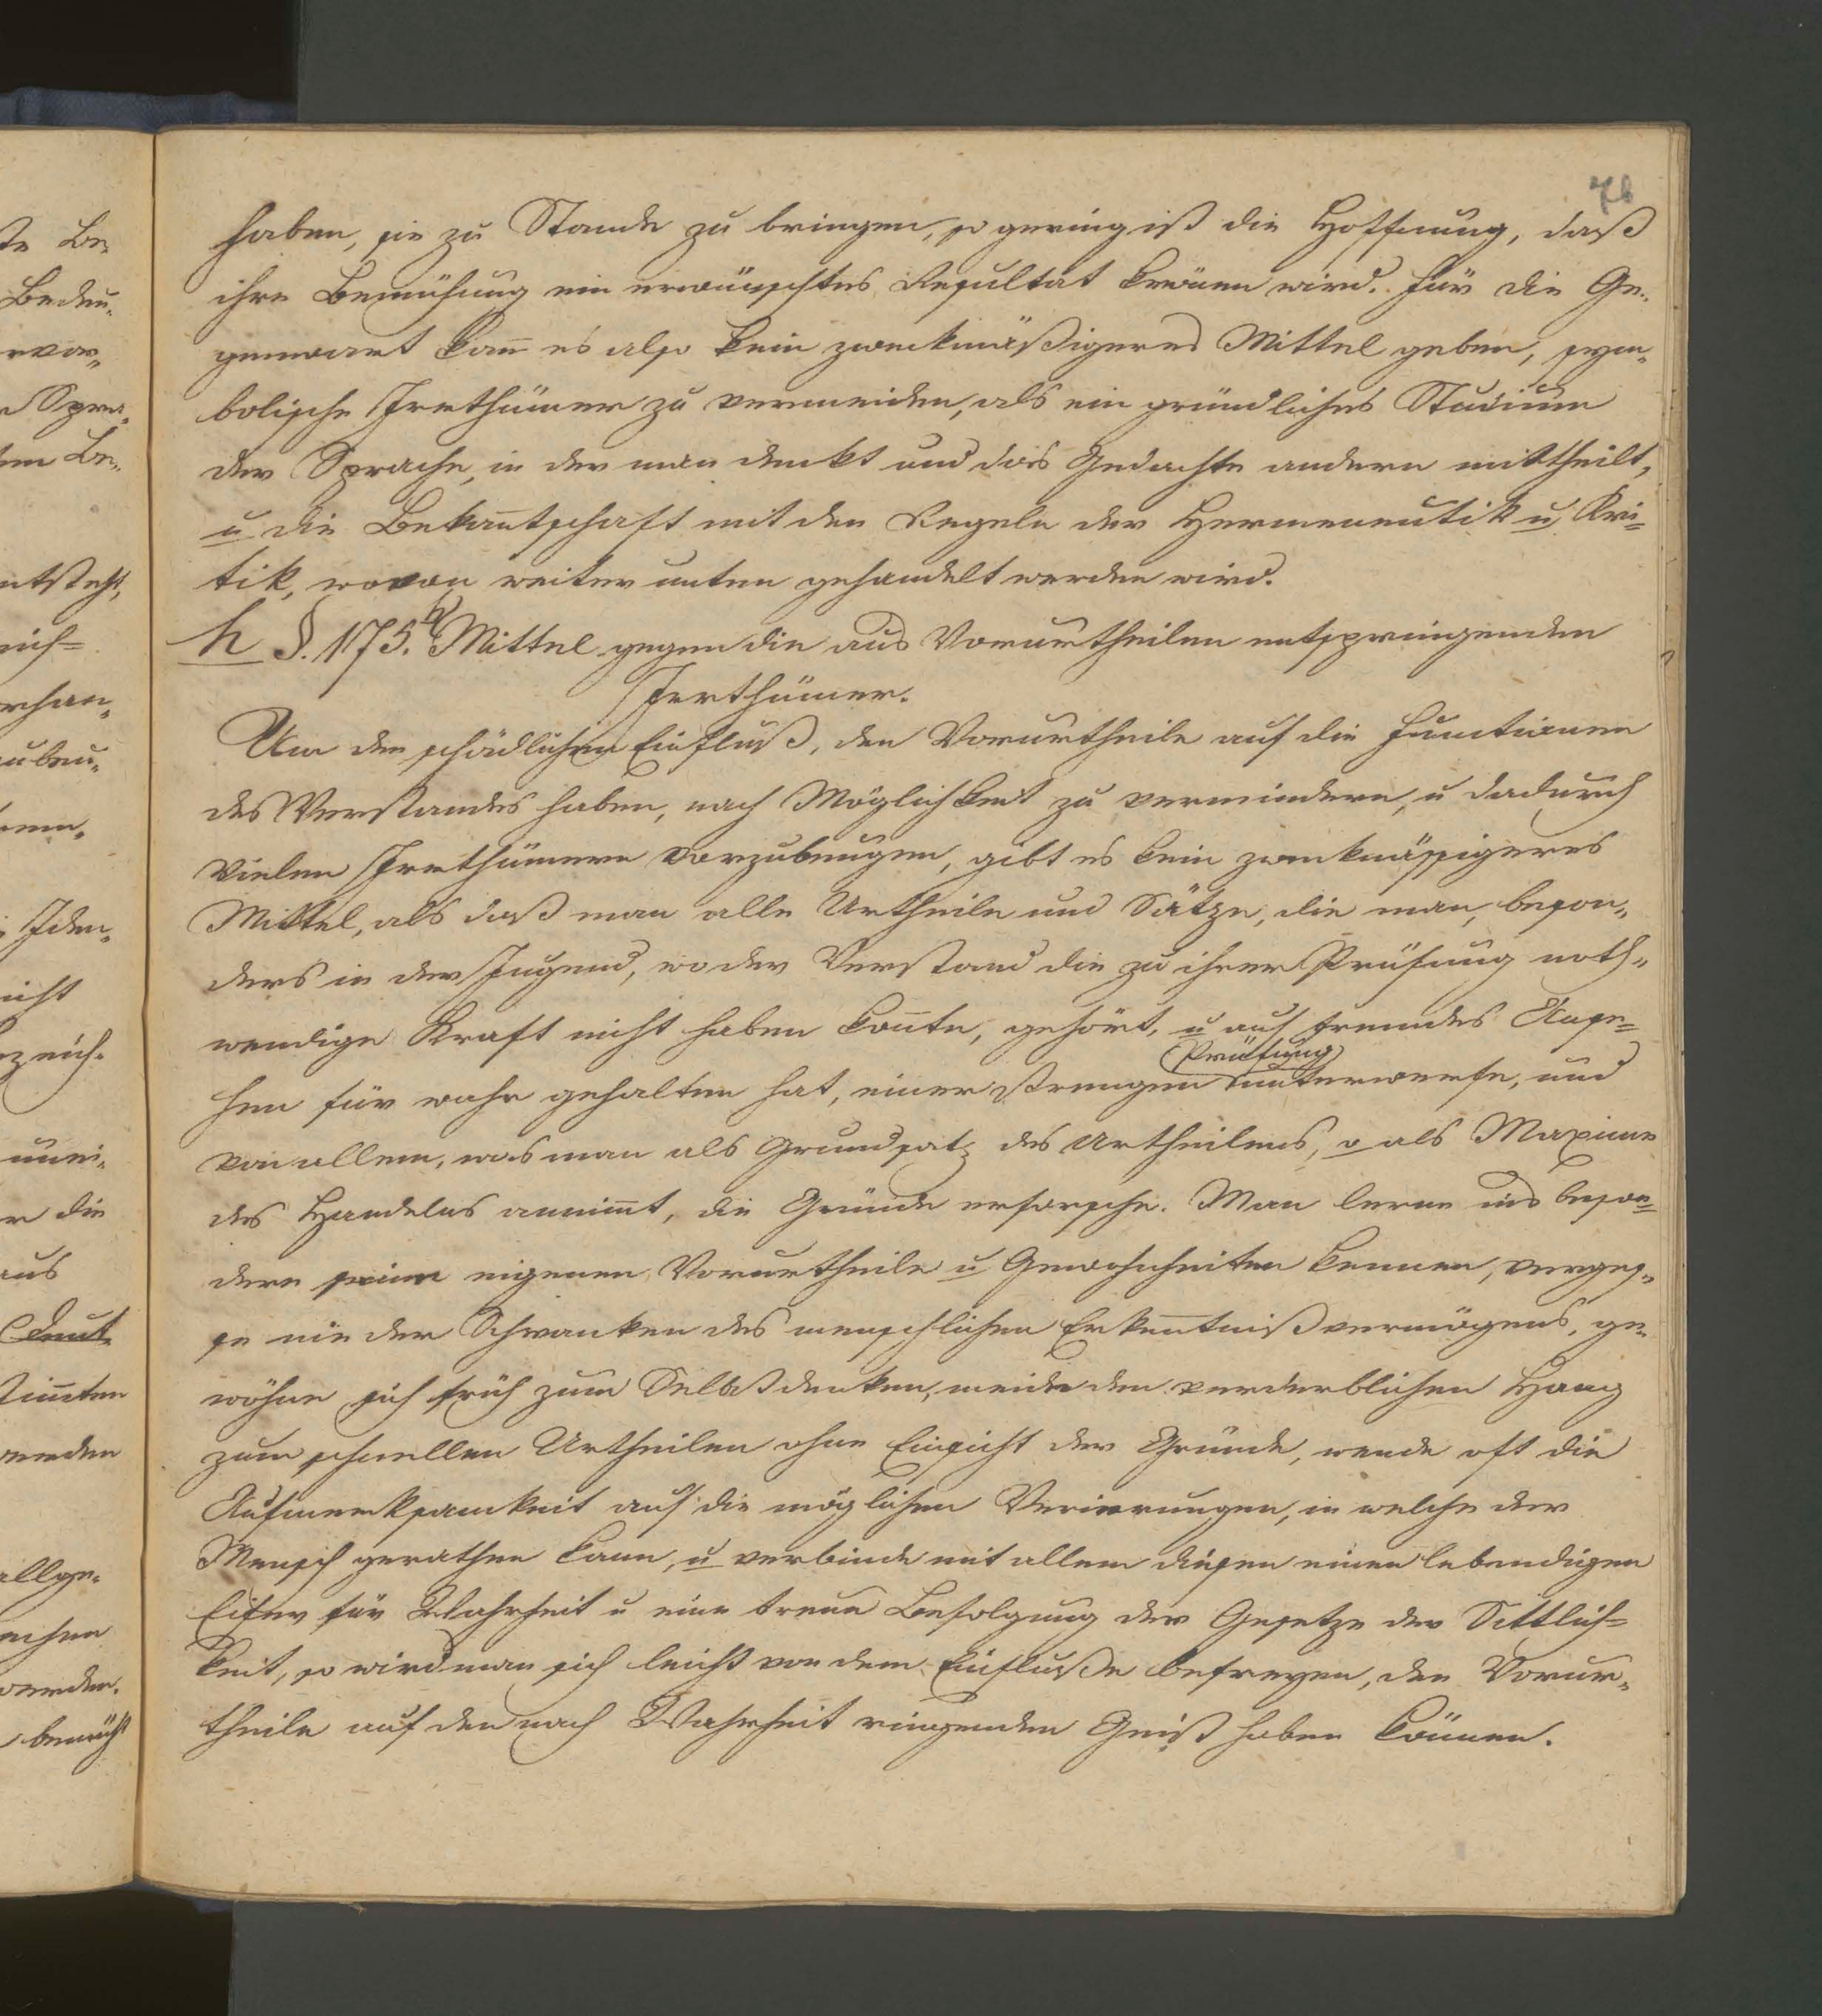 76
haben, sie zu Stande zu bringen, so gering ist die Hoffnung, daß
ihre Bemühung ein erwünschtes Resultat krönen wird. Für die Ge„
genwart kann es also kein zweckmäßigeres Mittel geben, sym„
bolische Irrthümer zu vermeiden, als ein gründliches Studium
der Sprache, in der man denkt und das Gedachte andern mittheilt,
u die Bekanntschaft mit den Regeln der Hermeneutik u Kri=
tik, wovon weiter unten gehandelt werden wird.
h §. 175. b) Mittel gegen die aus Vorurtheilen entspringenden
Irrthümer.
Um den schädlichen Einfluß, den Vorurtheile auf die Functionen
des Verstandes haben, nach Möglichkeit zu vermindern, u dadurch
vielen Irrthümern vorzubeugen, gibt es kein zweckmässigeres
Mittel, als daß man alle Urtheile und Sätze, die man, beson„
ders in der Jugend, wo der Verstand die zu ihrer Prüfung noth„
wendige Kraft nicht haben konnte, gehört, u auf fremdes Anse=
Prüfung
hen für wahr gehalten hat, einer strengen unterwerfe, und
von allem, was man als Grundsatz des Urtheilens, o als Maxime
des Handelns annimmt, die Gründe erforsche. Man lerne ins beson=
dere seine eigenen Vorurtheile u Gewohnheiten kennen, verges„
se nie der Schranken des menschlichen Erkenntnißvermögens, ge„
wöhne sich früh zum Selbstdenken, meide den verderblichen Hang
zum schnellen Urtheilen ohne Einsicht der Gründe, wende oft die
Aufmerksamkeit auf die möglichen Verirrungen, in welche der
Mensch gerathen kann, u verbinde mit allem diesen einen lebendigen
Eifer für Wahrheit u eine treue Befolgung der Gesetze der Sittlich=
keit, so wird man sich leicht von dem Einfluße befreyen, den Vorur„
theile auf den nach Wahrheit ringenden Geist haben können.